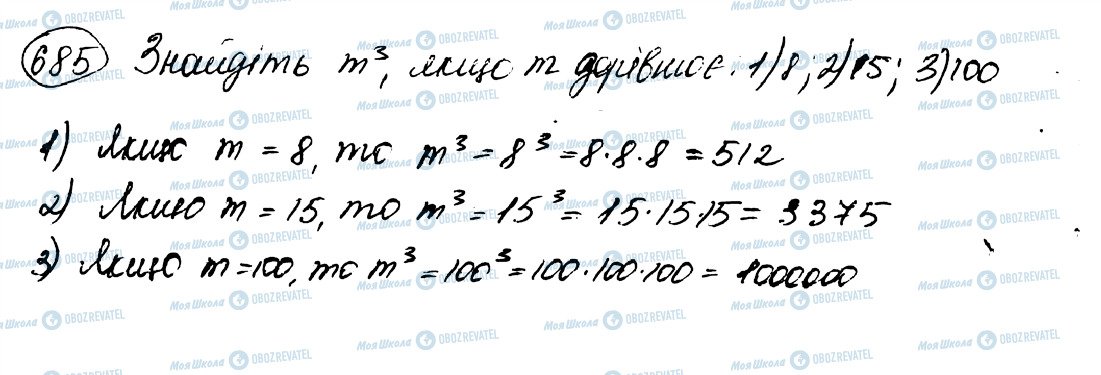 685 Знайдіть m³, якщо m дорівнює: 1) 8; 2) 15; 3) 100
1) Якщо m = 8, то m³ = 8³ = 8·8·8 = 512
2) Якщо m = 15, то m³ = 15³ = 15·15·15 = 3375
3) Якщо m = 100, то m³ = 100³ = 100·100·100 = 1000000
МояШкола OBOZREVATEL